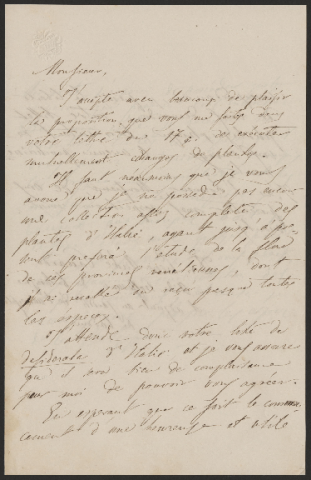 Monsieur,
J'accepte avec beaucoup de plaisir
la proposition, que vous me faite dans
votre lettre du 17 c. des
mutuellement changes de plantes.
Il faut neanmoins que je vous
avoue que je ne possede pas encore
une collection assez complete des
plantes d'Italie, ayant jusqu'à pre-
sent preferé l'etude de la flore
de ces provinces venitiennes, dont
j'ai recolté ou reçu presque toutes
les especes.
J'attends donc votre liste de
desiderata d'Italie et je vous assure
qu'il sera bien de complaisance
pour moi de pouvoir vous agreer.
En esperant que ce soit le commen-
cement d'une heureuse et utile